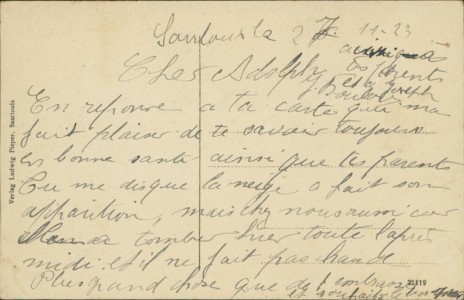 Sarrlouis la 27-11-23
Cher Adolphe
En reponse a ta carte qui ma
fait plaisir de te savoir toujours
en bonne santé ainsi que tes parents
Tu me dis que la neige a fait son
apparition, mais chez nous aussi car
a tomber hier toute l'après
midi et il ne fait pas chaud
Plus grand chose que de t'embrasser
et
ainsi que
tes parents
et Joseph
Verlag Ludwig Pieper, Saarlouis
21119